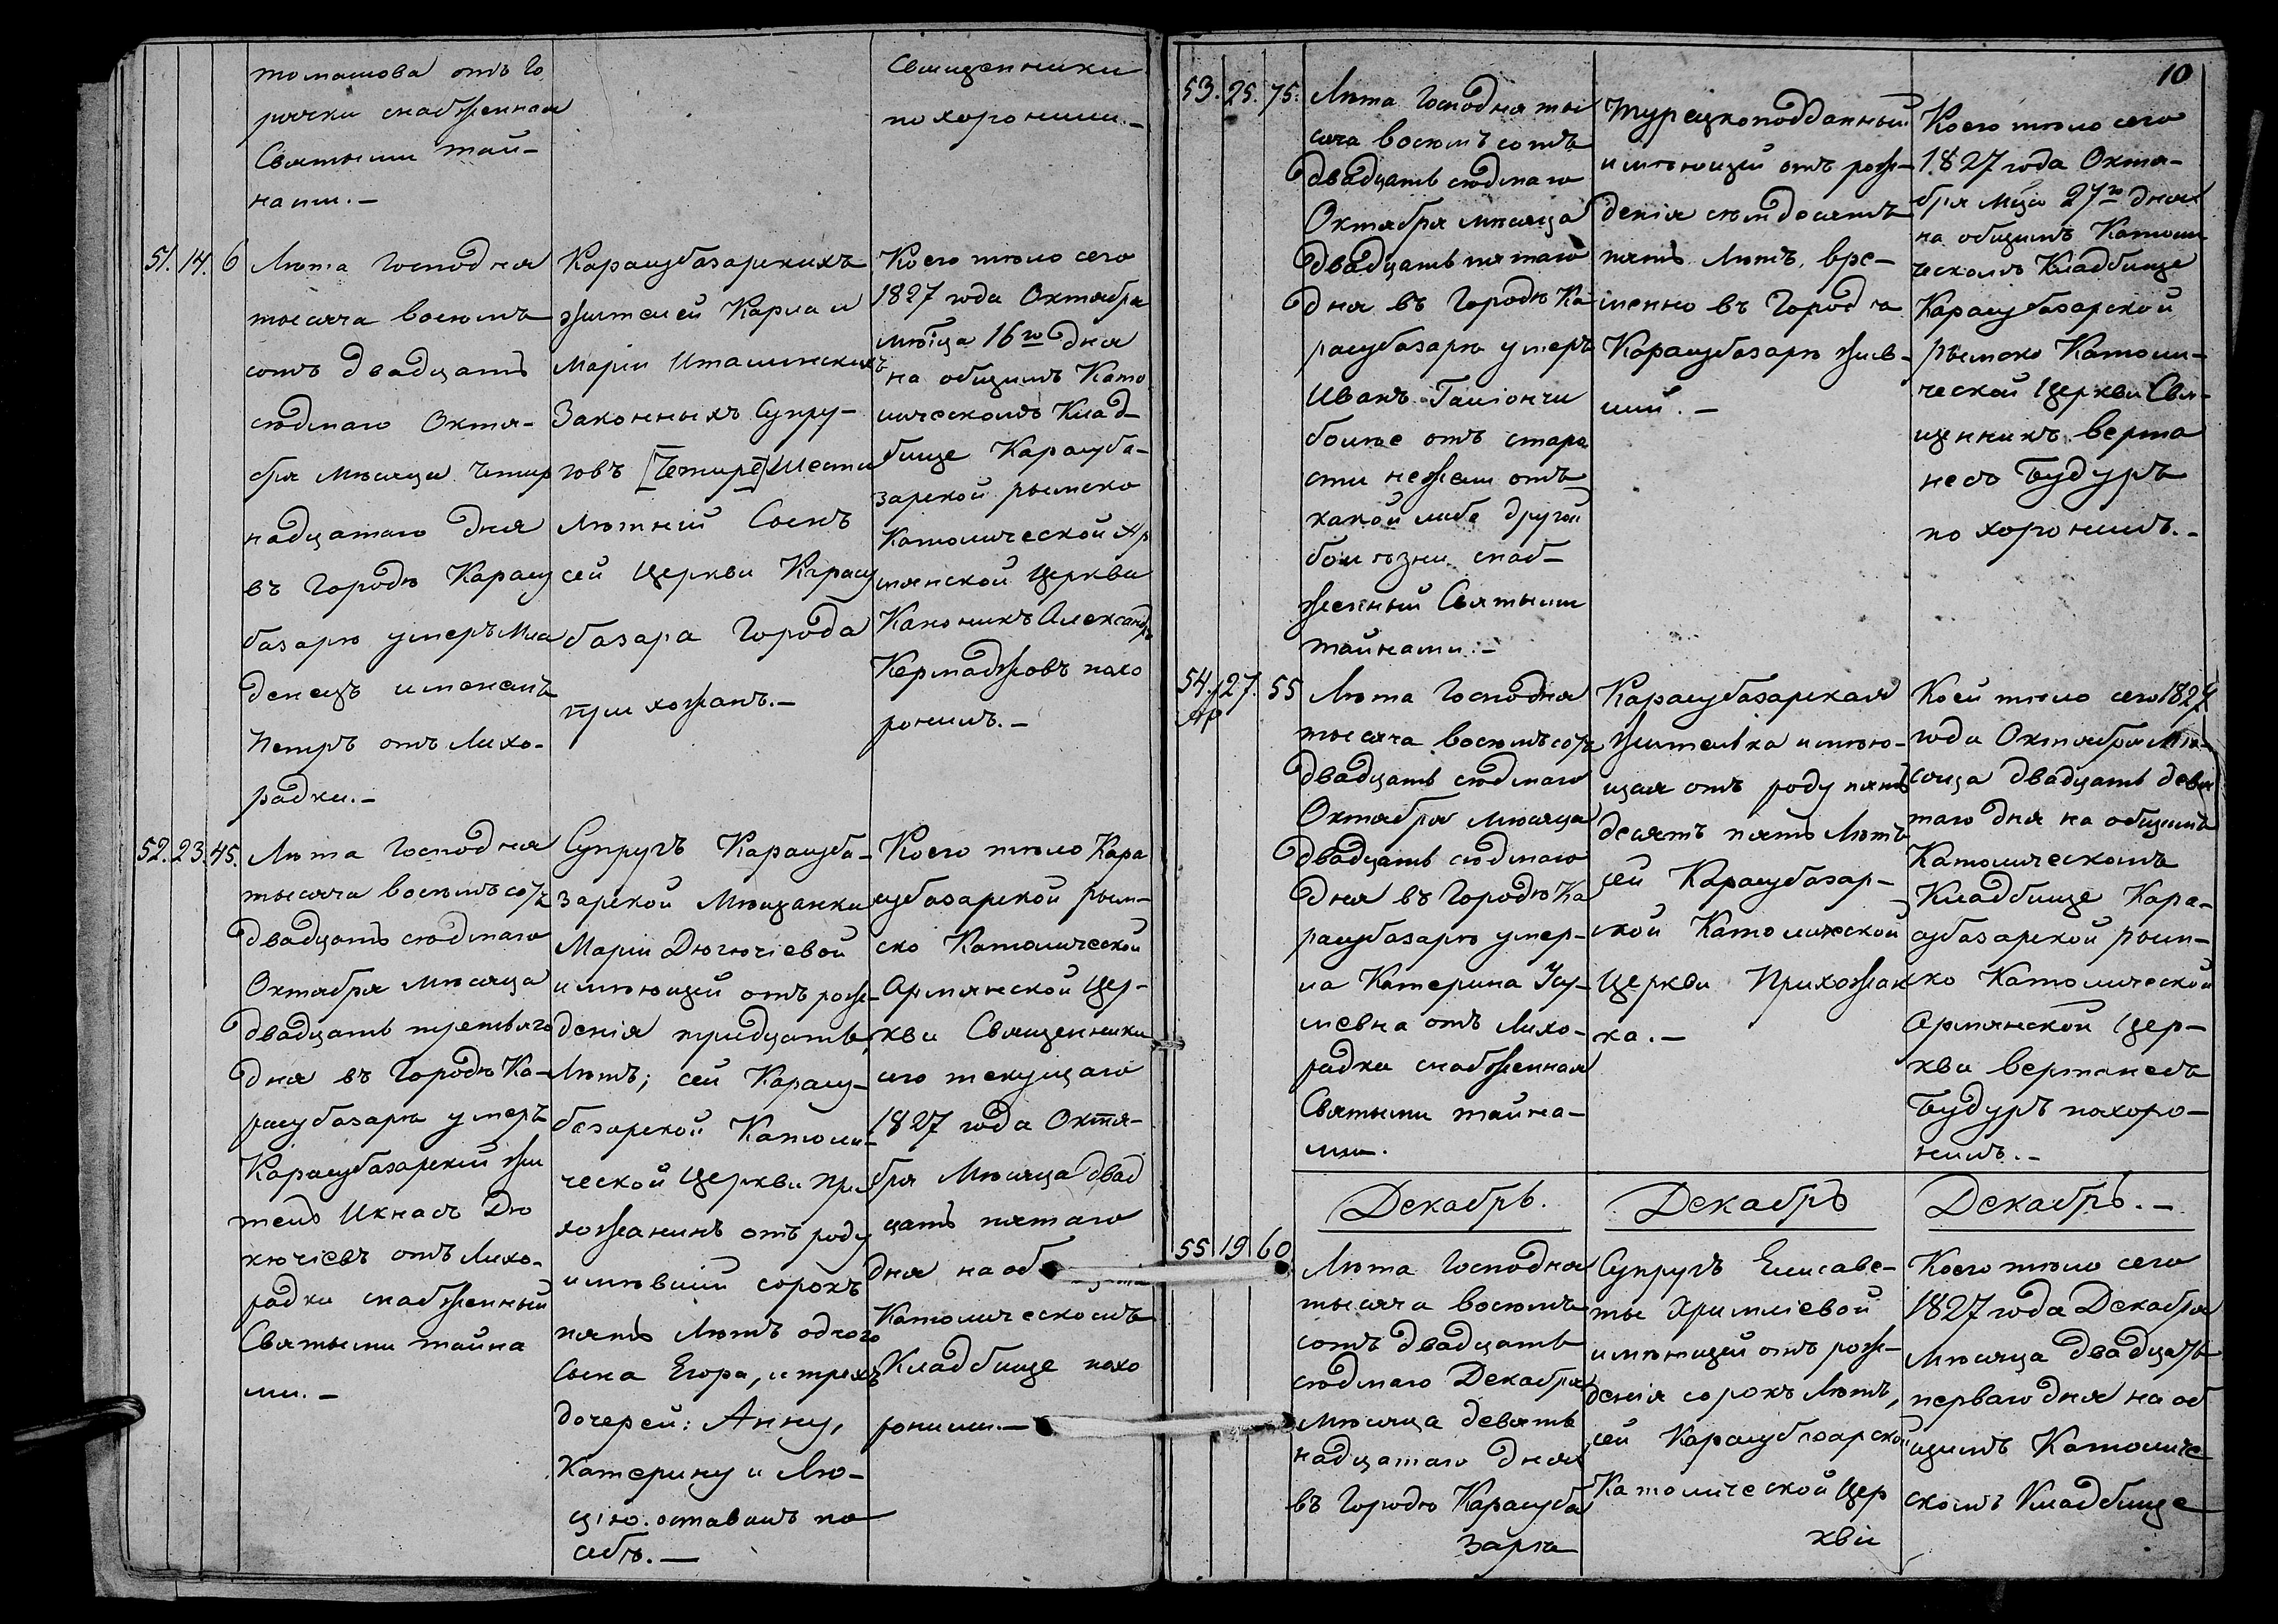 томашова отъ Го
рячки снабженная
Святыми тай-
нами.-
Священники
похоронили.-
51. 14. 6
Лѣта Господня
тысяча восемь
сотъ двадцать
седмаго Октя-
бря мѣсяца четыр
надцатаго дня
въ Городѣ Карасу
базарѣ умеръ Мла
денецъ именемъ
Петръ отъ Лихо-
радки.-
Карасубазарскихъ
жителей Карла и
Маріи Италинскихъ
Законныхъ Супру-
говъ [Четыре] Шести
Лѣтній Сынъ
сей Церкви Карасу
базара Города
прихожанъ.-
Коего тѣло сего
1827 года Октября
мѣсяца 16го дня
на общемъ Като
лическомъ Клад-
бище Карасуба-
зарской римско
Католической Ар
мянской Церкви
Каноникъ Александръ
Кермаджовъ похо
ронилъ.-
52. 23. 45.
Лѣта Господня
тысяча восемьсотъ
двадцать седмаго
Октября мѣсяца
двадцать третьяго
дня въ Городѣ Ка-
расубазарѣ умеръ
Карасубазарскій жи
тель Икнасъ Дю
кючіевъ отъ Лихо-
радки снабженный
Святыми тайна
ми.-
Супругъ Карасуба-
зарской Мѣщанки
Маріи Дюгючіевой
имѣющей отъ рож-
денія тридцать
Лѣтъ; сей Карасу-
базарской Католи-
ческой Церкви при
хожанинъ отъ роду
имѣвшій сорокъ
пять Лѣтъ одного
Сына Егора, и трехъ
дочерей: Анну,
Катерину и Лю-
цію. оставилъ по
себѣ.-
Коего тѣло Кара
субазарской рим-
ско Католической
Армянской Цер-
кви Священники
сего текущаго
1827 года Октя-
бря Мѣсяца двад
цать пятаго
дня на об
Католическомъ
Кладбище похо
ронили.-
10
53. 25. 75.
Лѣта Господня ты
сяча восемь сотъ
двадцать седмаго
Октября мѣсяца
двадцать пятаго
дня въ Городѣ Ка
расубазарѣ умеръ
Иванъ Галіончи
болѣе отъ старо
сти нежели отъ
какой либо другой
болѣзни снаб-
женный Святыми
тайнами.-
Турецкоподданный
имѣющій отъ рож-
денія семдесятъ
пять Лѣтъ, вре-
менно въ Городѣ
Карасубазарѣ жив-
шій.-
Коего тѣло сего
1827 года Октя-
бря Мца 27го дня
на общемъ Католи
ческомъ Кладбище
Карасубазарской
римско Католи-
ческой Церкви Свя-
щенникъ верта
несъ Будуръ
похоронилъ.-
54. 27. 55
Ар
Лѣта Господня
тысяча восемьсотъ
двадцать седмаго
Октября мѣсяца
двадцать седмаго
дня въ Городѣ Ка
расубазарѣ умер-
ла Катерина
отъ Лихо-
радки снабженная
Святыми тайна-
ми.
Карасубазарская
Жителька имѣю-
щая отъ роду пять
десятъ пять Лѣтъ
сей Карасубазар-
ской Католической
Церкви Прихожан
ка.-
Коей тѣло сего 1827
года Октября Мѣ-
сяца двадцать девя
таго дня на общемъ
Католическомъ
Кладбище Кара-
субазарской рим-
ко Католической
Армянской Цер-
кви вертанесъ
Будуръ похоро-
нилъ.-
Декабрь.
Декабрь
Декабрь.-
55 19 60.
Лѣта Господня
тысяча восемь
сотъ двадцать
седмаго Декабря
Мѣсяца девять
надцатаго дня
въ Городѣ Карасуба
зарѣ
Супругъ Елисаве-
ты Хримліевой
имѣющей отъ рож-
денія сорокъ Лѣтъ,
сей Карасубазарской
Католической Цер
кви
Коего тѣло сего
1827 года Декабря
Мѣсяца двадцать
перваго дня на об
щемъ Католиче
скомъ Кладбище